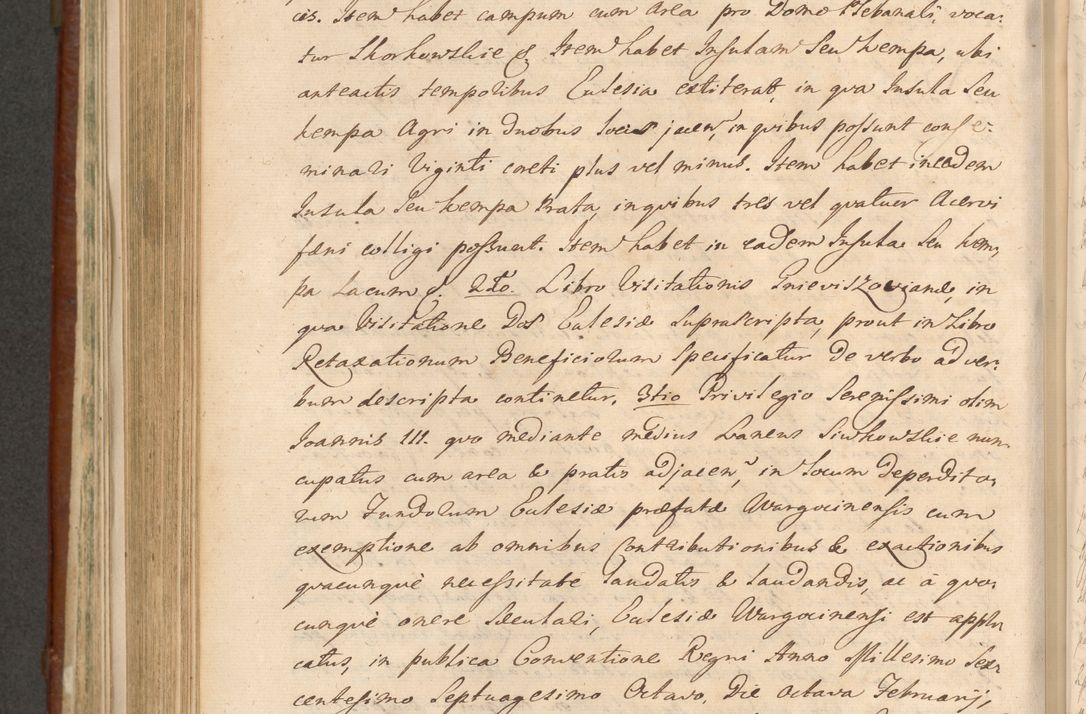 cis. Item habet campum cum Area pro Domo Plebanali, voca:
tur Skorkowskie &. Item habet Insulam Seu Kempa, ubi
anteactis temporibus Ecclesia extiterat, in qva Insula Seu
Kempa Agri in duobus locis jacen, in qvibus possunt conse:
minari Viginti coreti plus vel minus. Item habet in eadem
Insula Seu Kempa Prata, in qvibus tres vel qvatuor Acervi
fæni colligi possunt. Item habet in eadem Insula Seu Kem,
pa Lacum &. 2do. Libro Visitationis Gnieviszoviana, in
qva Visitatione Dos Ecclesiæ Suprascripta, prout in Libro
Retaxationum Beneficiorum Specificatur de verbo ad ver:
bum descripta continetur. 3tio Privilegio Serenissimi olim
Joannis III. qvo mediante medius Laneus Siwkowskie nun,
cupatus cum area & pratis adjacen, in Locum Deperdito,
rum Fundorum Ecclesiæ præfatæ Wargocinensis cum
exemptione ab omnibus Contributionibus & exactionibus
qvacunqvè necessitate Laudatis & Laudandis, ac à qvo,
cunqvè onere Sæculari, Ecclesiæ Wargocinensi est appli
catus, in publica Conventione Regni Anno Millesimo Sex,
centesimo Septuagesimo Octavo, Die octava Februarij,